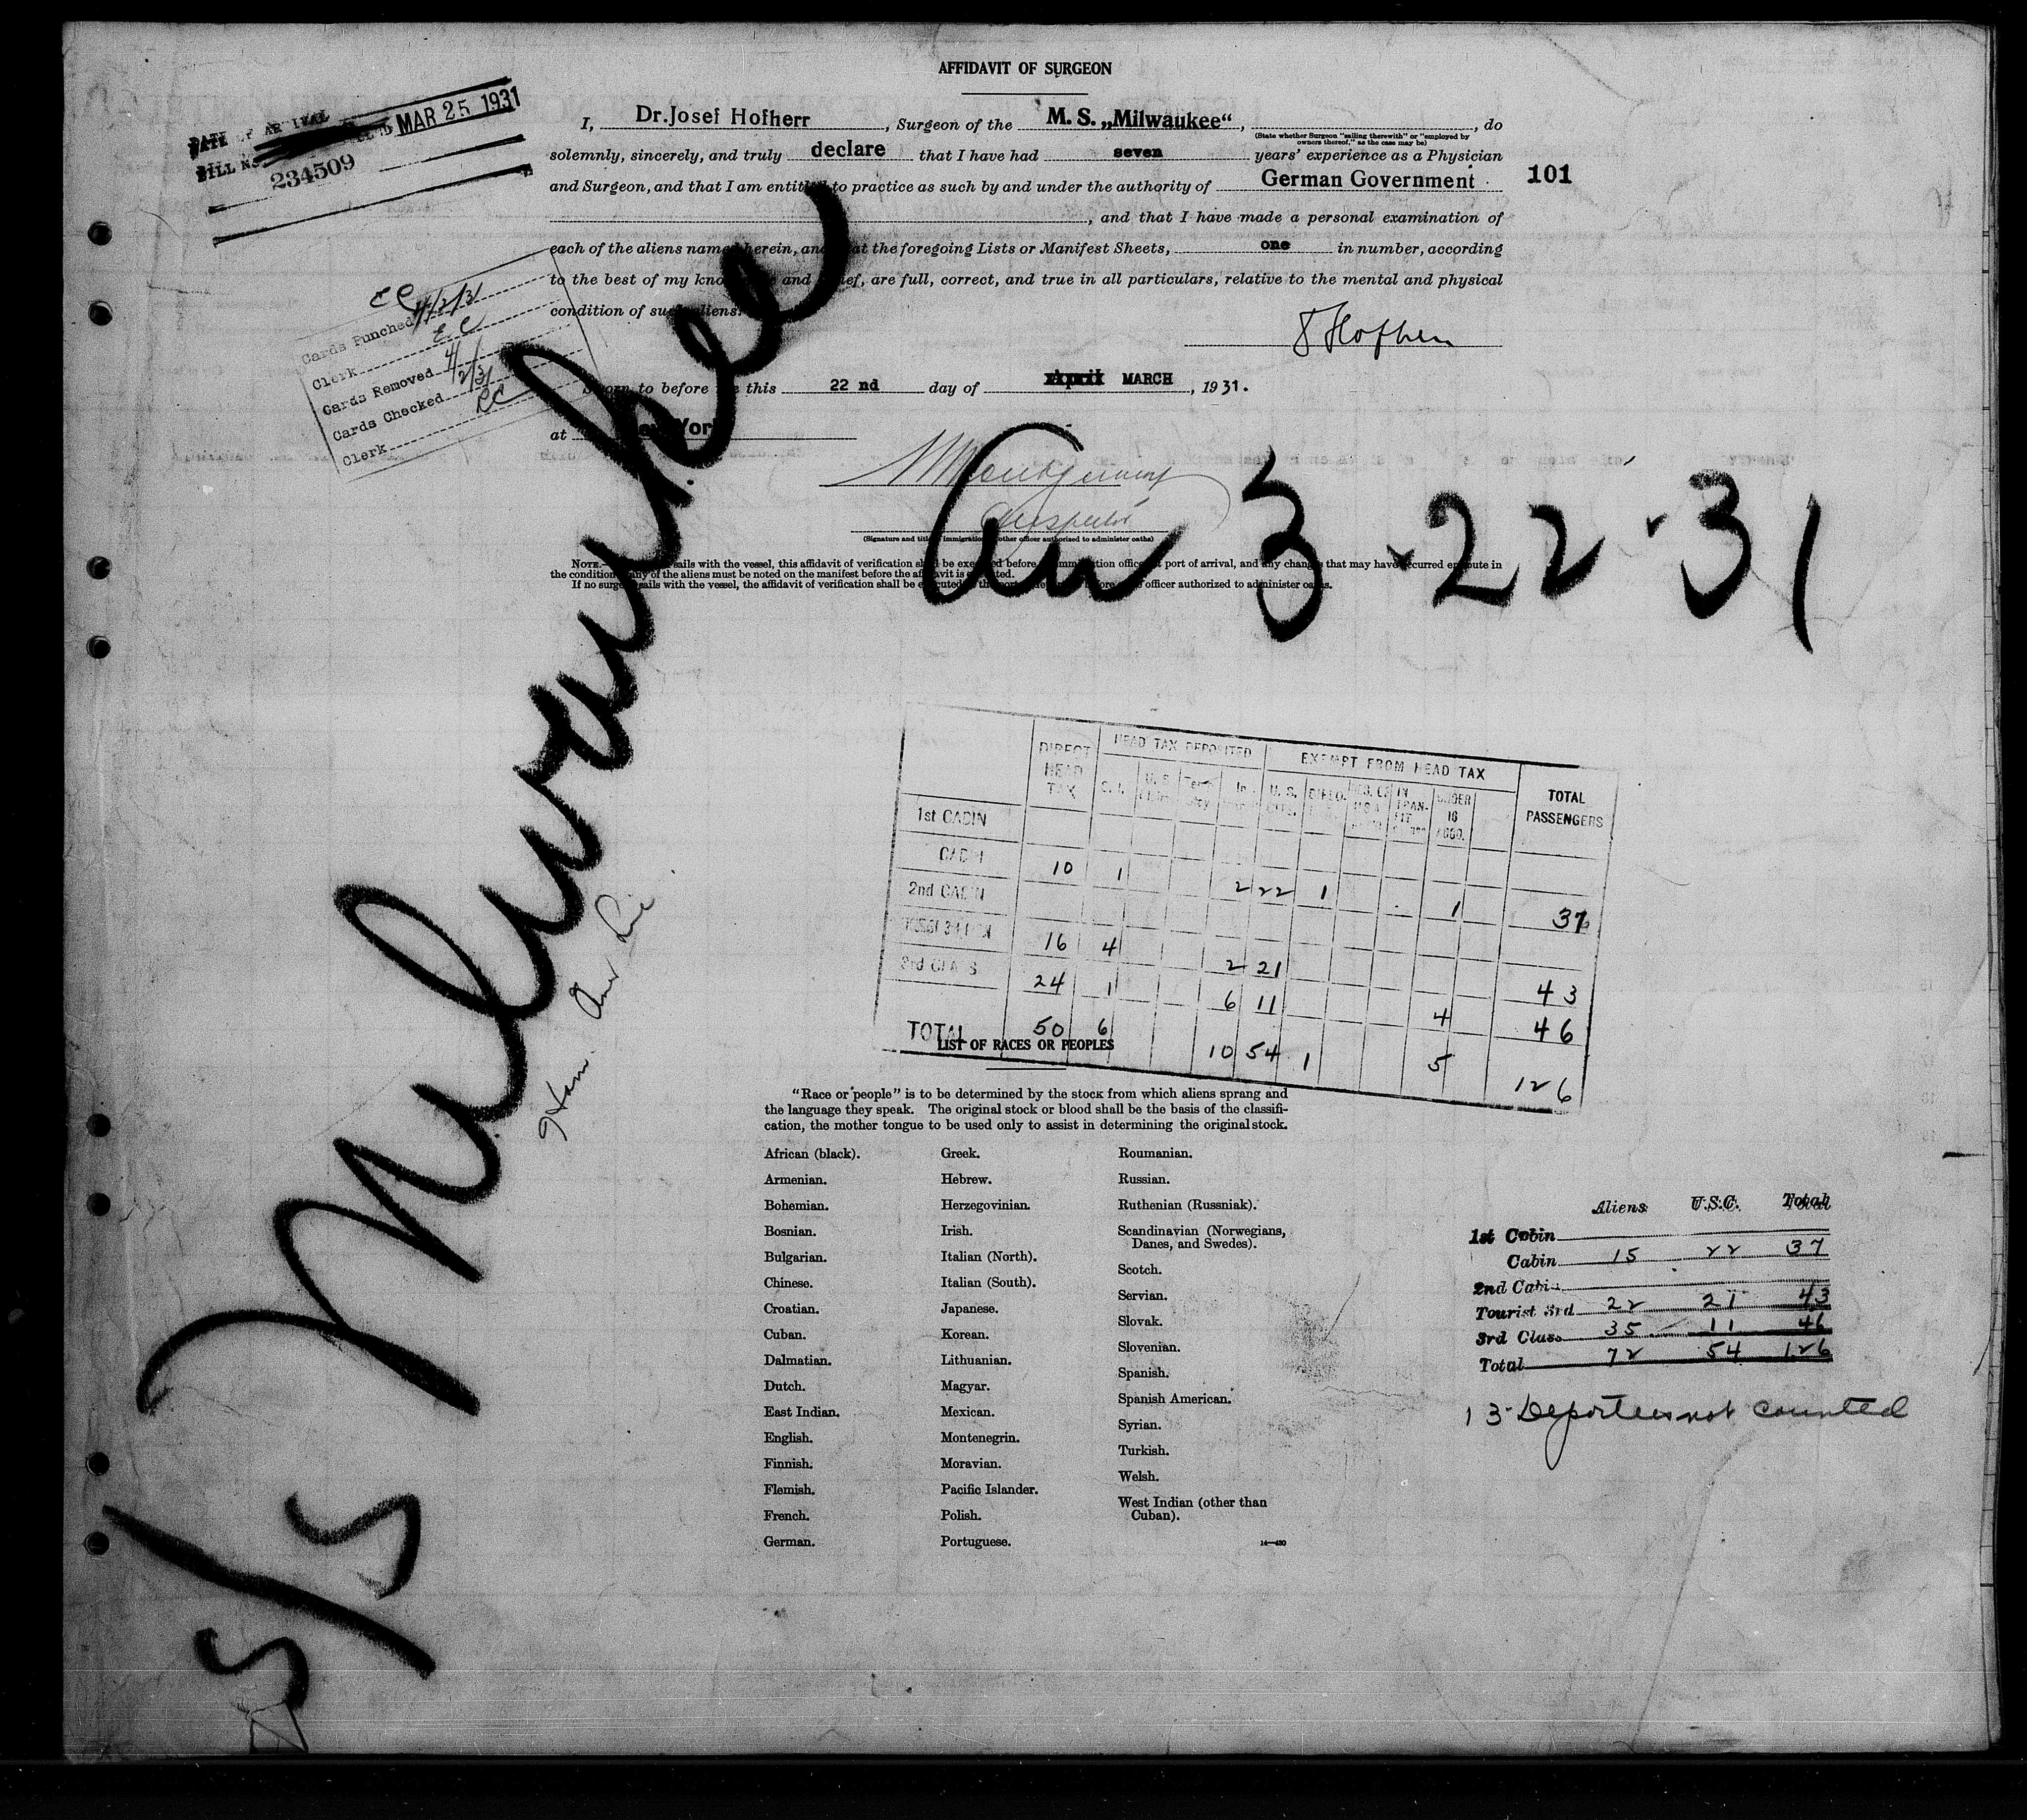 AFFIDAVIT OF SURGEON
DATE OF ARRIVAL MAR 25 1931
BILL No.
234509
I, Dr.Josef Hofherr, Surgeon of the M. S. „Milwaukee“, , do
(State whether Surgeon "sailing therewith" or "employed by
owners thereof," as the case may be)
solemnly, sincerely, and truly declare that I have had seven years' experience as a Physician
and Surgeon, and that I am entitled to practice as such by and under the authority of German Government
101
, and that I have made a personal examination of
each of the aliens named herein, and that the foregoing Lists or Manifest Sheets, one in number, according
to the best of my knowledge and belief, are full, correct, and true in all particulars, relative to the mental and physical
condition of such aliens.
J Hofherr
Cards Punched 4/2/31
EC
Clerk EC
Cards Removed 4/
Cards Checked 2/31
Clerk
Sworn to before me this 22 nd day of April MARCH, 1931.
at New York
Montgomery
Inspector
(Signature and title of immigration or other officer authorized to administer oaths)
NOTE. sails with the vessel, this affidavit of verification shall be executed before immigration officer at port of arrival, and any changes that may have occurred en route in
the condition of any of the aliens must be noted on the manifest before the affidavit is executed.
If no surgeon sails with the vessel, the affidavit of verification shall be executed at the port of before officer authorized to administer oaths.
S/S Milwaukee
Arr 3-22-31
Ham Amer Line
DIRECT HEAD TAX HEAD TAX DEPOSITED EXEMPT FROM HEAD TAX TOTAL PASSENGERS
U. S. DIPLO. IN TRANSIT UNDER 16
1st CABIN
CABIN 10 1 2 22 1 1 37
2nd CABIN
TOURIST 3rd CABIN 16 4 2 21 43
3rd CLASS 24 1 6 11 4 46
TOTAL 50 6 10 54 1 5 126
LIST OF RACES OR PEOPLES
"Race or people" is to be determined by the stock from which aliens sprang and
the language they speak. The original stock or blood shall be the basis of the classifi-
cation, the mother tongue to be used only to assist in determining the original stock.
African (black).
Armenian.
Bohemian.
Bosnian.
Bulgarian.
Chinese.
Croatian.
Cuban.
Dalmatian.
Dutch.
East Indian.
English.
Finnish.
Flemish.
French.
German.
Greek.
Hebrew.
Herzegovinian.
Irish.
Italian (North).
Italian (South).
Japanese.
Korean.
Lithuanian.
Magyar.
Mexican.
Montenegrin.
Moravian.
Pacific Islander.
Polish.
Portuguese.
Roumanian.
Russian.
Ruthenian (Russniak).
Scandinavian (Norwegians,
Danes, and Swedes).
Scotch.
Servian.
Slovak.
Slovenian.
Spanish.
Spanish American.
Syrian.
Turkish.
Welsh.
West Indian (other than
Cuban).
14—430
Aliens U.S.C. Total
1st Cabin
Cabin 15 22 37
2nd Cabin
Tourist 3rd 22 21 43
3rd Class 35 11 46
Total 72 54 126
13 Deportees not counted